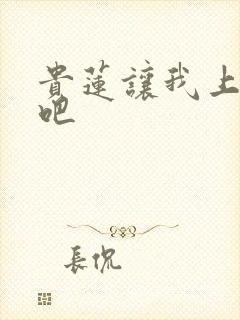 貴蓮讓我上
吧
長侃